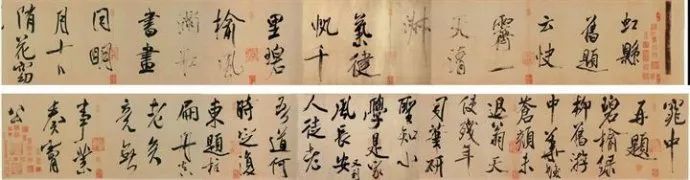 虹縣
舊題
云快
霽一
天清
淑
氣健
帆千
里碧
榆風
滿船
書畫
同明
月十日
隋花窈
窕中
再題
碧榆綠
柳舊遊
中華髮
蒼顏未
退翁天
使殘年
司筆研
聖知小
學是家
風長安又到
人徒老
吾道何
時定復
東題柱
扁舟真
老矣
竟無
事業
奏膚
公